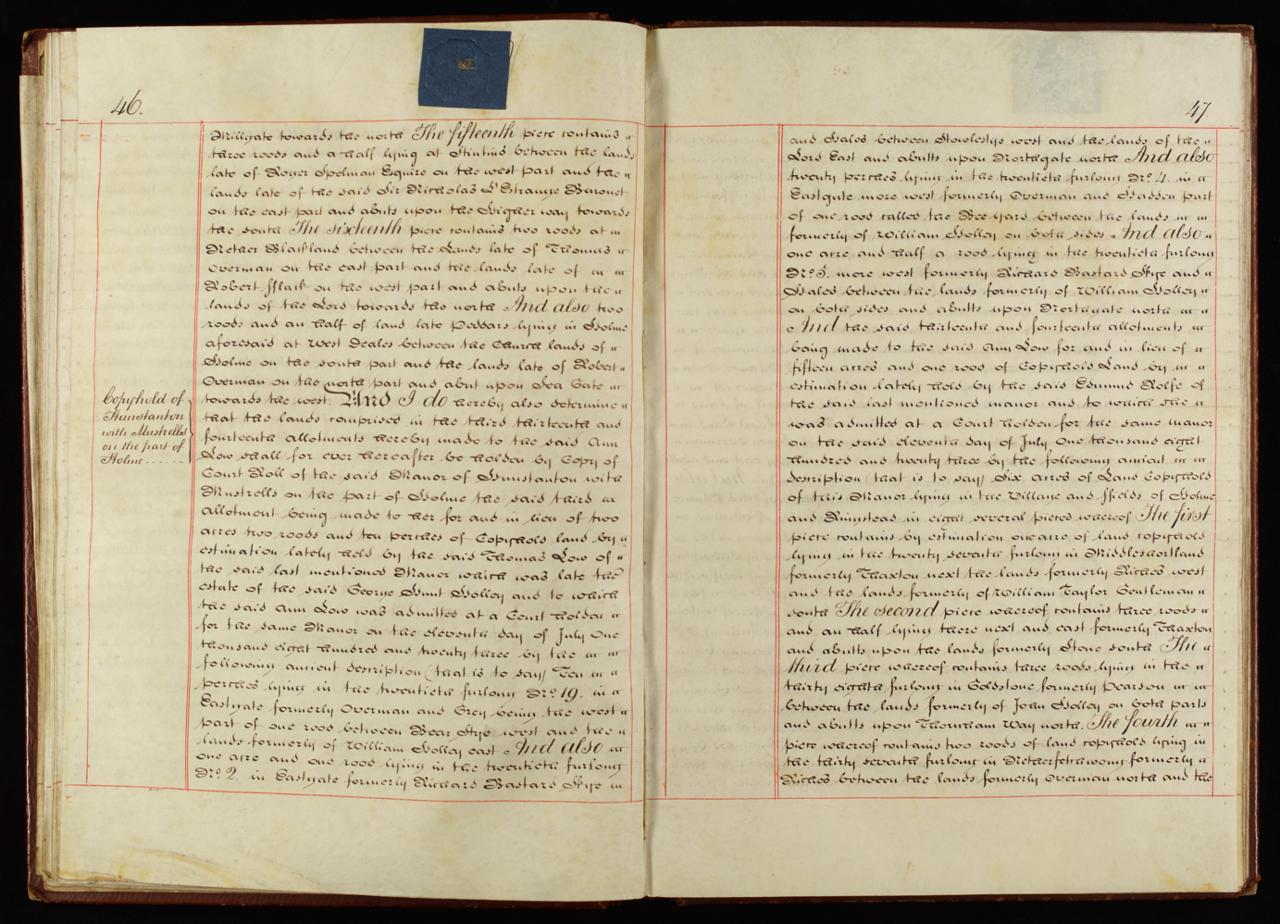 46.
Millgate towards the north The fifteenth piece contains
three roods and a half lying at Stintins between the lands
late of Roger Spelman Esquire on the west part and the
lands late of the said Sir Nicholas L'Estrange Baronet
on the east part and abuts upon the Higher way towards
the south The sixteenth piece contains two roods at
Nether Blackland between the Lands late of Thomas
Overman on the east part and the lands late of
Robert fflack on the west part and abuts upon the
lands of the Lord towards the north And also two
roods and an half of land late Peddars lying in Holme
aforesaid at West Deales between the Church lands of
Holme on the south part and the lands late of Robert
Overman on the north part and abut upon Sea Gate
towards the west. And I do hereby also determine
that the lands comprised in the third thirteenth and
fourteenth allotments hereby made to the said Ann
Low shall for ever hereafter be holden by Copy of
Court Roll of the said Manor of Hunstanton with
Mustrells on the part of Holme the said third
allotment being made to her for and in lieu of two
acres two roods and ten perches of Copyhold land by
estimation lately held by the said Thomas Low of
the said last mentioned Manor which was late the
estate of the said George Hunt Holley and to which
the said Ann Low was admitted at a Court holden
for the same Manor on the eleventh day of July One
thousand eight hundred and twenty three by the
following ancient description (that is to say) Ten
perches lying in the twentieth furlong No. 19. in
Eastgate formerly Overman and Grey being the west
part of one rood between Bear Stye west and the
lands formerly of William Holley east And also
one acre and one rood lying in the twentieth furlong
No. 2. in Eastgate formerly Richard Bastard Stye
Copyhold of
Hunstanton
with Mustrells
on the part of
Holme
47
and Hales between Stowlestye west and the lands of the
Lord East and abutts upon Northgate north And also
twenty perches lying in the twentieth furlong No. 4. in
Eastgate more west formerly Overman and Hadden part
of one rood called the Bee Yard between the lands
formerly of William Holley on both sides And also
one acre and half a rood lying in the twentieth furlong
No. 5. more west formerly Richard Bastard Stye and
Hales between the lands formerly of William Holley
on both sides and abutts upon Northgate north
And the said thirteenth and fourteenth allotments
being made to the said Ann Low for and in lieu of
fifteen acres and one rood of Copyhold Land by
estimation lately held by the said Edmund Rolfe of
the said last mentioned manor and to which she
was admitted at a Court holden for the same manor
on the said eleventh day of July One thousand eight
hundred and twenty three by the following ancient
description (that is to say) Six acres of Land Copyhold
of this Manor lying in the Village and ffields of Holme
and Ringstead in eight several pieces whereof The first
piece contains by estimation one acre of land copyhold
lying in the twenty seventh furlong in Middleshortland
formerly Thaxton next the lands formerly Riches west
and the lands formerly of William Taylor Gentleman
south The second piece whereof contains three roods
and an half lying there next and east formerly Thaxton
and abutts upon the lands formerly Stone south The
third piece whereof contains three roods lying in the
thirty eighth furlong in Goldstone formerly Pearson
between the lands formerly of John Holley on both parts
and abutts upon Thornham Way north. The fourth
piece whereof contains two roods of land copyhold lying in
the thirty seventh furlong in formerly
Riches between the lands formerly Overman north and the